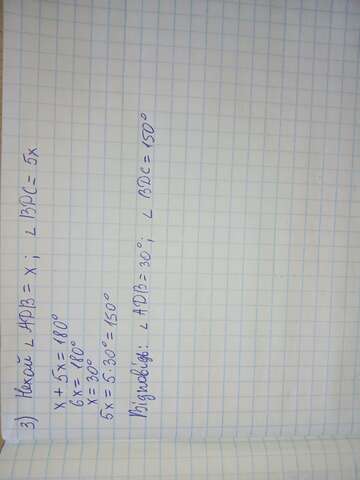 3) Нехай ∠ ADB = x ; ∠ BDC = 5x
x + 5x = 180°
6x = 180°
x = 30°
5x = 5 · 30° = 150°
Відповідь: ∠ ADB = 30°; ∠ BDC = 150°